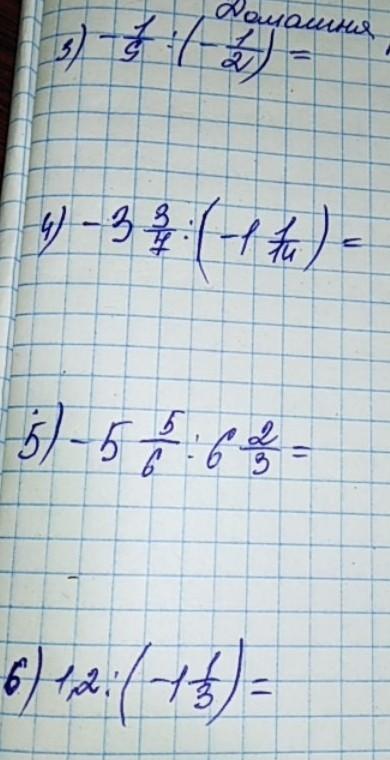 Домашня
3) -1/5 : (-1/2) =
4) -3 3/7 : (-1 1/14) =
5) -5 5/6 : 6 2/3 =
6) 1,2 : (-1 1/3) =